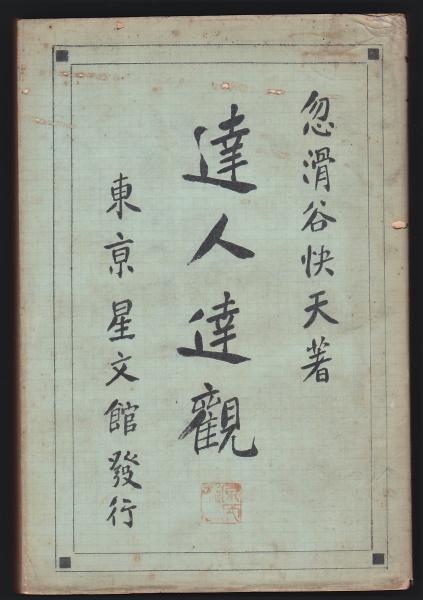 忽滑谷快天著
達人達觀
東京星文館發行